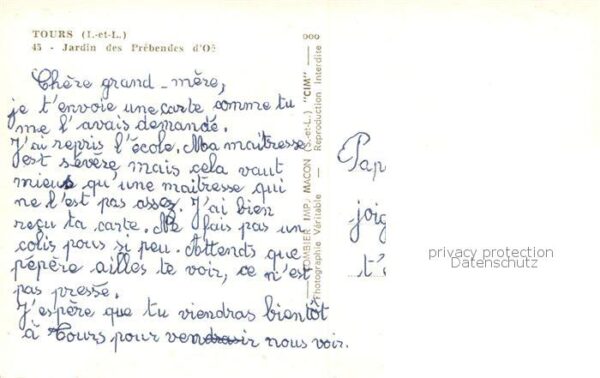 TOURS (I.-et-L.)
45 - Jardin des Prébendes d'Oé
Chère grand-mère,
je t'envoie une carte comme tu
me l'avais demandé.
J'ai repris l'école. Ma maitresse
est sévère mais cela vaut
mieux qu'une maitresse qui
ne l'est pas assez. J'ai bien
reçu ta carte. Ne fais pas un
colis pous si peu. Attends que
pépère ailles te voir, ce n'est
pas pressé.
J'espère que tu viendras bientôt
à Tours pour nous voir.
COMBIER IMP. MACON (S.-et-L.) "CIM"
Photographie Véritable — Reproduction Interdite
Pap
joig
t'
privacy protection
Datenschutz